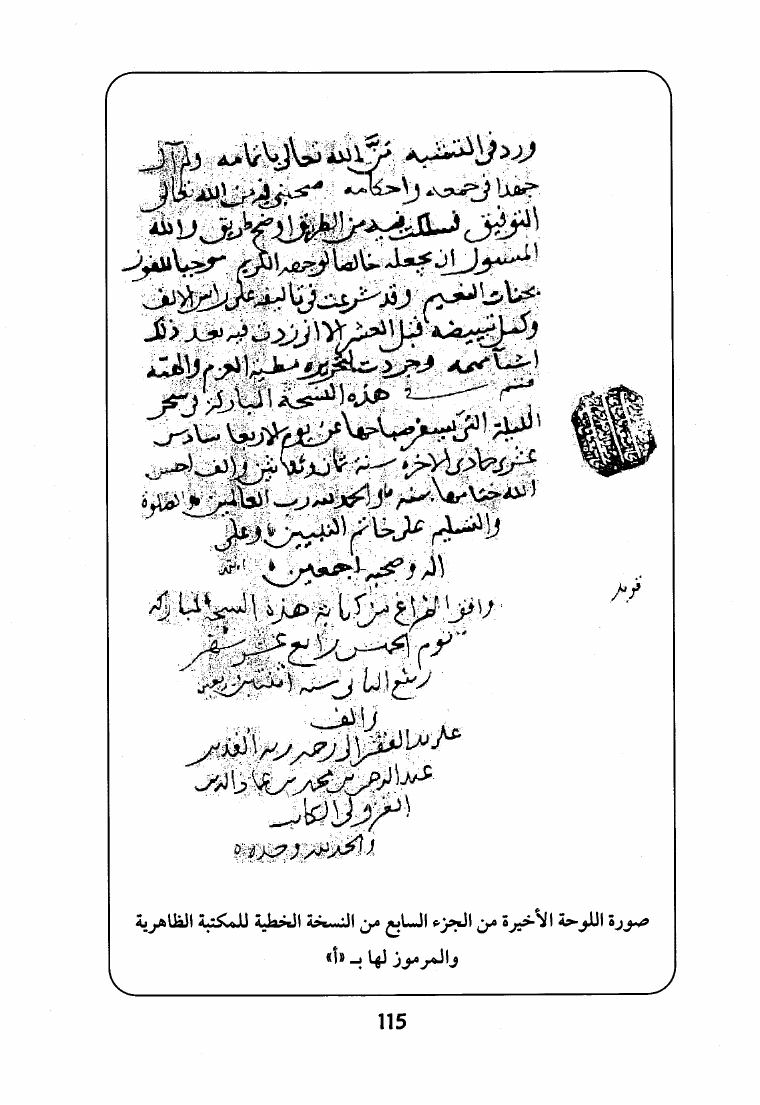 ورد في التشبيه مَنَّ الله تعالى باتمامه ولم آل
جهدا في جمعه واحكامه صحبني فيه من الله تعالى
التوفيق فسلكت فيه من الطريق اوضح طريق والله
المسول ان يجعله خالصا لوجهه الكريم موجبا للفوز
بجنات النعيم وقد شرعت في تاليفه على راس الالف
وكمل تبييضه قبل العشر الا اني زدت فيه بعد ذلك
اشيآ مهمه وجردت لتحريره مطية العزم والهمه
هذه النسخة المباركة في سحر
الليلة التي يسفر صباحها عن يوم الاربعا سادس
عشري جمادى الاخره سنة ثمان وثلاثين والف احسن
الله ختامها بمنه والحمد لله رب العالمين والصلوة
والتسليم على خاتم النبيين وعلى
اله وصحبه اجمعين
وافق الفراغ من كتابة هذه النسخة المباركة
يوم الخميس رابع عشر شهر
ربيع الثاني سنة اثنتين
والف
على يد الفقير الى رحمة ربه القدير
عبد الرحمن بن محمد بن عماد الدين
الكاتب
والحمد لله وحده
صورة اللوحة الأخيرة من الجزء السابع من النسخة الخطية للمكتبة الظاهرية
والمرموز لها بـ «أ»
115